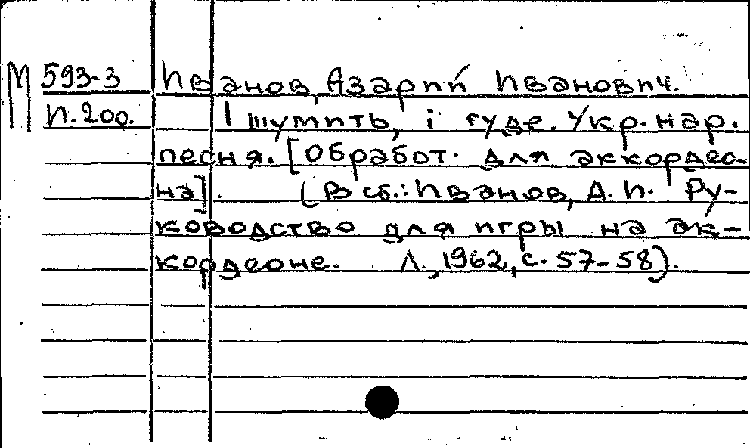 М 593-3 Иванов, Азарий Иванович.
И.200. І шумить, і гуде. Укр. нар.
песня. [Обработ. для аккордео-
на]. (В сб.: Иванов, А.И. Ру-
ководство для игры на ак-
кордеоне. Л., 1962, с. 57-58).